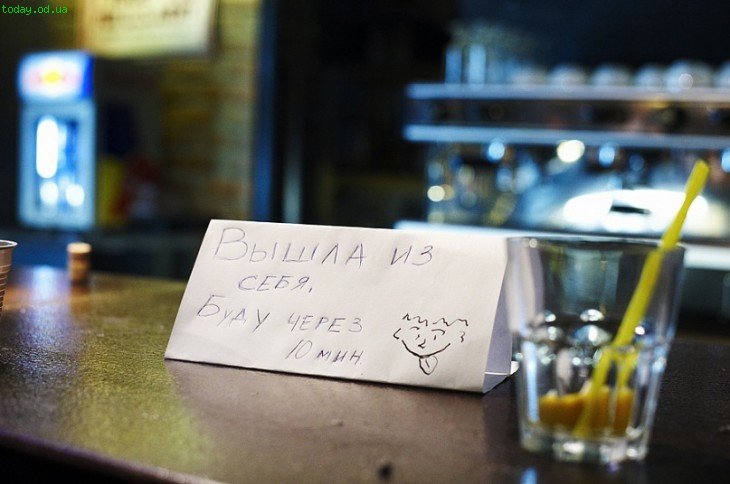 today.od.ua
Вышла из
себя,
Буду через
10 мин.